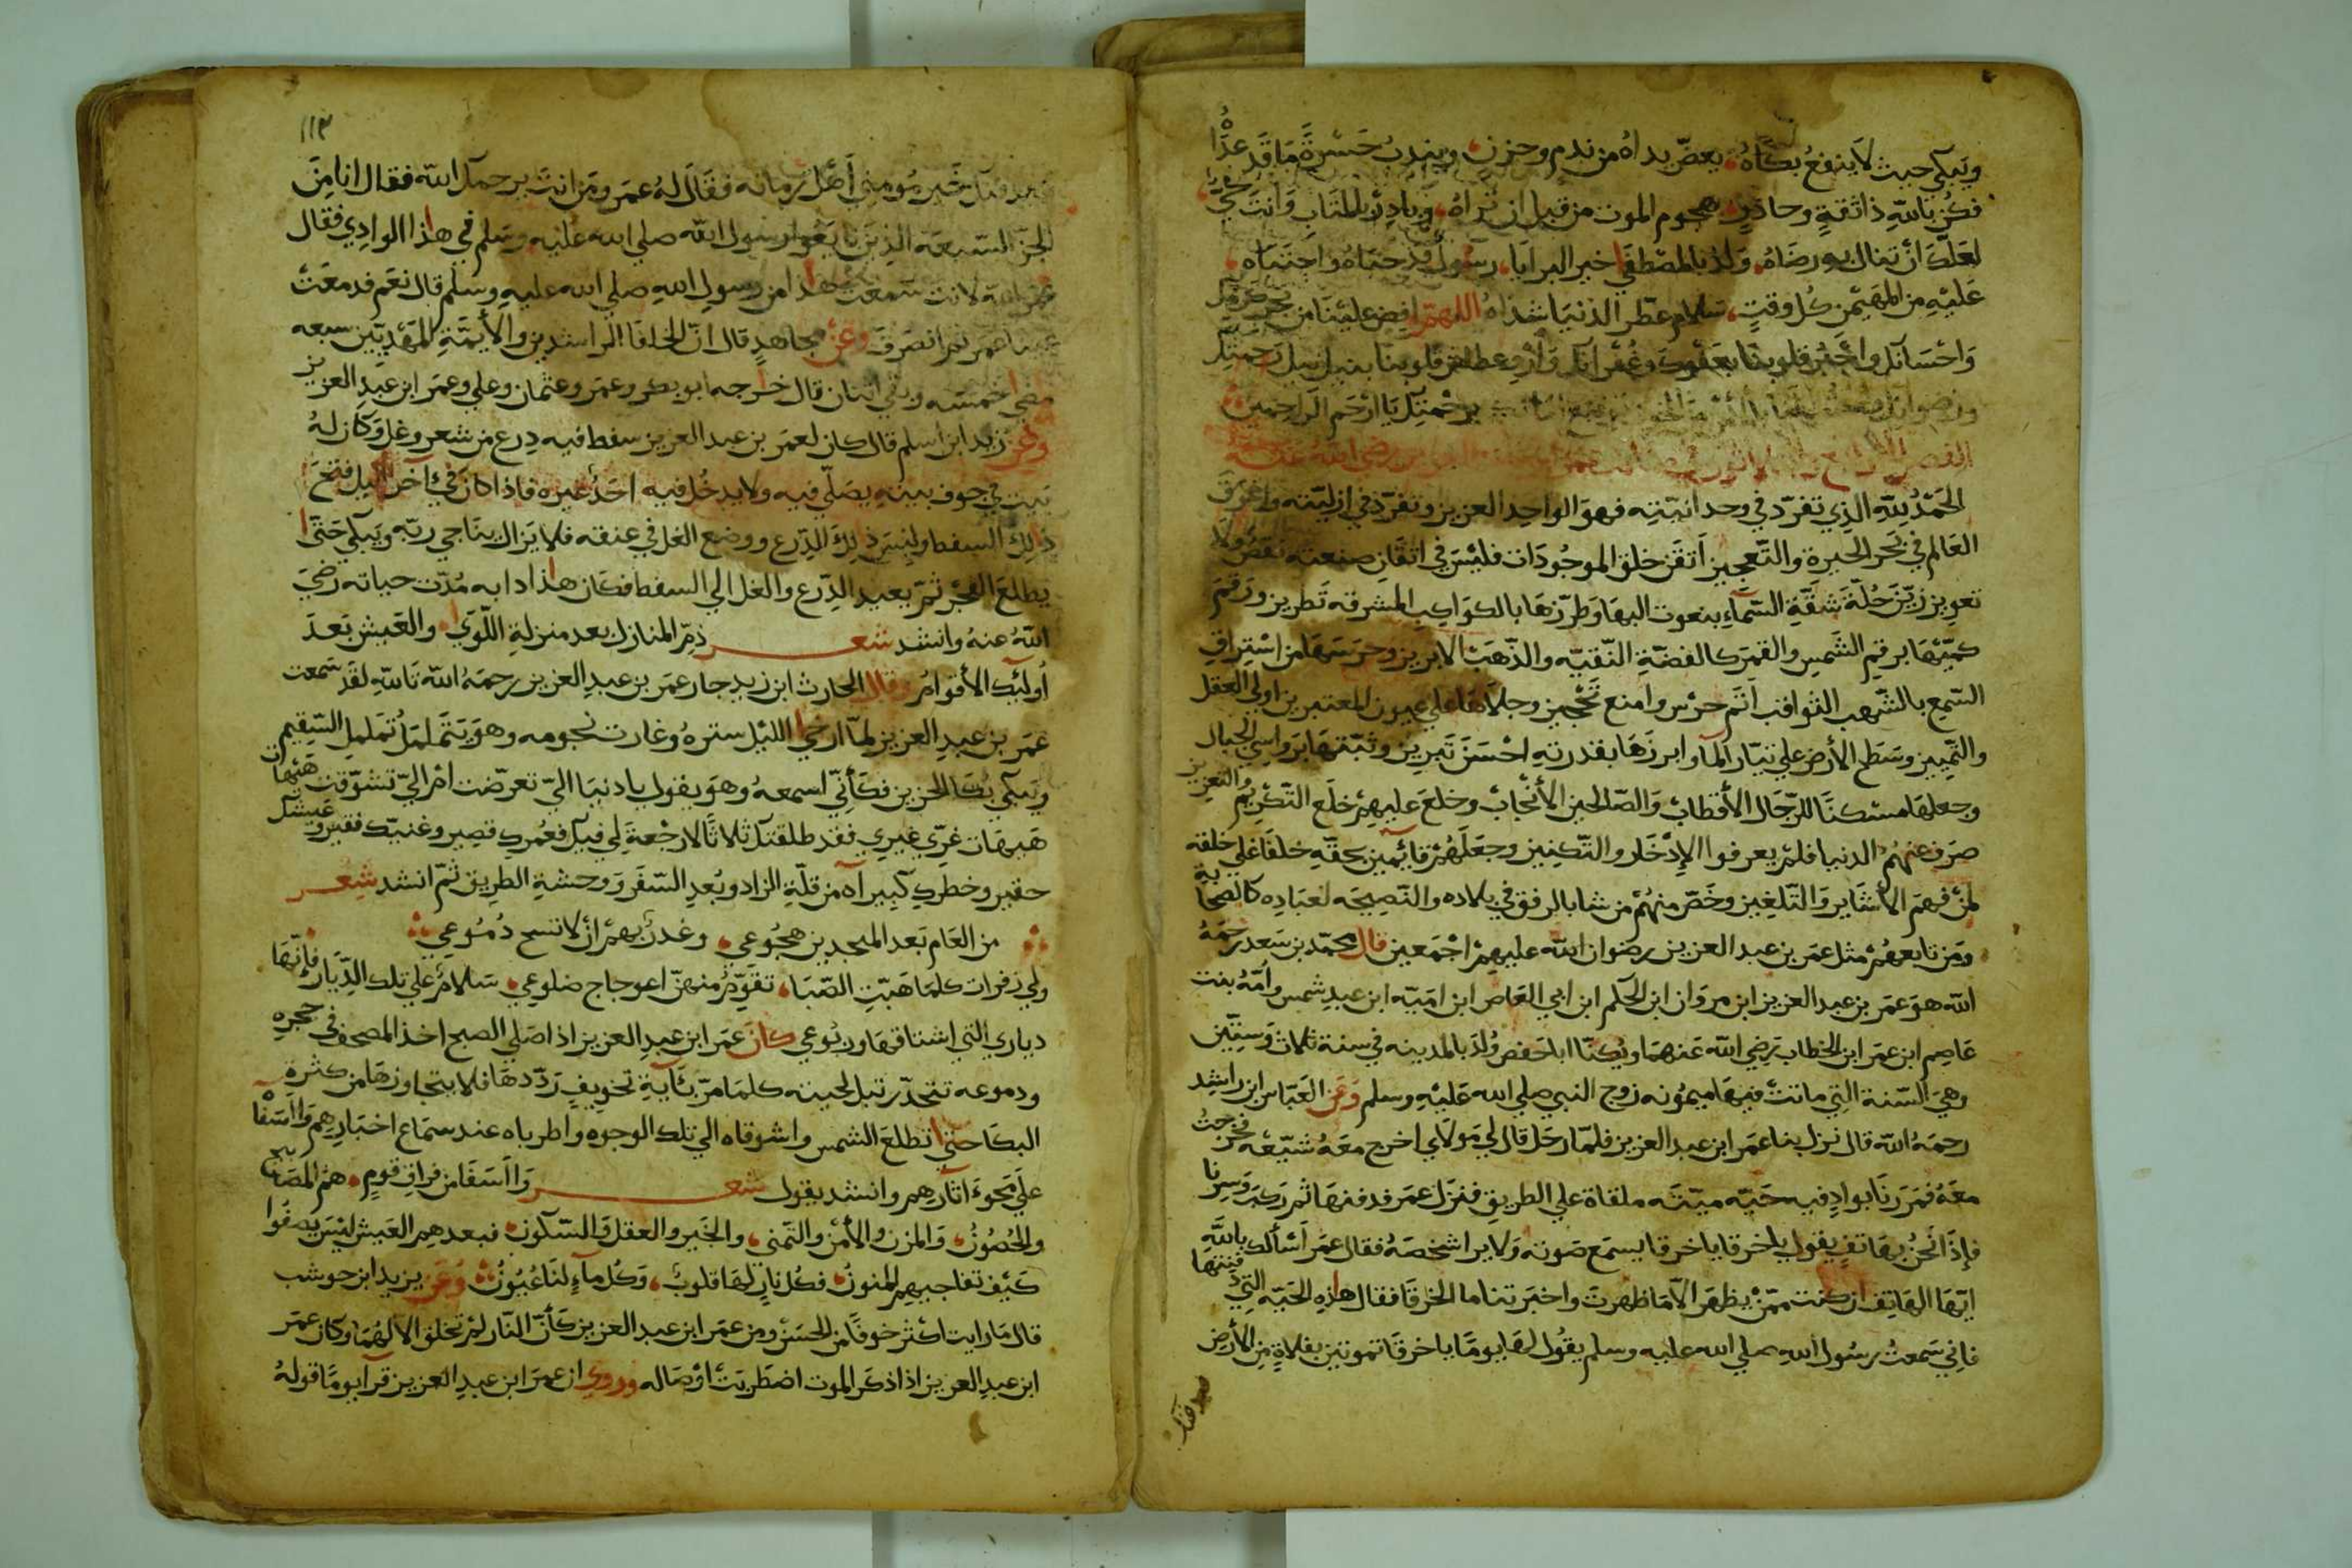 ويبكي حيث لا ينفع بكاه يعض يداه من ندم وحزن ويندب حسرة ما قد عداه
فكن بالله ذا ثقة وحاذر هجوم الموت من قبل ان تراه وبادر بالمتاب وانت حي
لعلك أن تنال به رضاه ولذ بالمصطفي خير البرايا رسول قد حباه واجتباه
عليه من المهيمن كل وقت سلام عطر الدنيا شذاه اللهم افض علينا من بحر كرمك
واحسانك واجبر قلوبنا بعفوك وغفرانك وارو عطش قلوبنا بنيل رحمتك
ورضوانك برحمتك يا ارحم الراحمين
الفصل رضي الله عنه
الحمد لله الذي تفرد في وحدانيته فهو الواحد العزيز وتفرد في ازليته واغرق
العالم في بحر الحيرة والتعجيز أتقن خلق الموجودات فليس في اتقان صنعته نقص ولا
تعويز زين حلة شقة السماء بنعوت البها وطرزها بالكواكب المشرقه تطريز ورقم
كميتها برقم الشمس والقمر كالفضة النقيه والذهب الابريز وحرسها من استراق
السمع بالشهب الثواقب أتم حرس وامنع تحجيز وجلاها علي عيون المعتبرين اولي العقل
والتمييز وسطح الأرض علي تيار الماء وابرزها بقدرته احسن تبريز وثبتها برواسي الجبال
وجعلها مسكنا للرجال الأقطاب والصالحين الأنجاب وخلع عليهم خلع التكريم والتعزيز
صرف عنهم الدنيا فلم يعرفوا الإدخار والتكنيز وجعلهم قائمين بحقه خلفا علي خلقه
لمن فهم الأشاير والتلغيز وخص منهم من شا بالرفق في بلاده والنصيحه لعباده كالصحابة
ومن تابعهم مثل عمر بن عبد العزيز رضوان الله عليهم اجمعين قال محمد بن سعد رحمه
الله هو عمر بن عبد العزيز ابن مروان ابن الحكم ابن ابي العاص ابن اميه ابن عبد شمس وأمه بنت
عاصم ابن عمر ابن الخطاب رضي الله عنهما ويكنا ابا حفص ولد بالمدينه في سنة ثلاث وستين
وهي السنة التي ماتت فيها ميمونه زوج النبي صلي الله عليه وسلم وعن العباس ابن راشد
رحمه الله قال نزل بنا عمر ابن عبد العزيز فلما رحل قال لي مولاي اخرج معه شيعه فخرجت
معه فمررنا بواد فيه حيه ميته ملقاة علي الطريق فنزل عمر فدفنها ثم ركب وسرنا
فإذا نحن بهاتف يقول يا خرقا يا خرقا يسمع صوته ولا يرا شخصه فقال عمر أسألك بالله
ايها الهاتف ان كنت ممن يظهر الا ما ظهرت واخبرتنا ما الخرقا فقال هذه الحيه التي دفنتها
فاني سمعت رسول الله صلي الله عليه وسلم يقول لها يوما يا خرقا تموتين بفلاة من الأرض
١١٣
خير مومني أهل زمانه فقال له عمر ومن انت يرحمك الله فقال انا من
الجن السبعه الذين بايعوا رسول الله صلي الله عليه وسلم في هذا الوادي فقال
عمر الله لانت سمعت هذا من رسول الله صلي الله عليه وسلم قال نعم فدمعت
عينا عمر ثم انصرف وعن مجاهد قال ان الخلفا الراشدين والأيمة المهديين سبعه
مضي خمسه وبقي اثنان قال خارجه ابو بكر وعمر وعثمان وعلي وعمر ابن عبد العزيز
وعن زيد ابن اسلم قال كان لعمر بن عبد العزيز سفط فيه درع من شعر وغل وكان له
بيت في جوف بيته يصلي فيه ولا يدخل فيه احد غيره فاذا كان في آخر الليل فتح
ذلك السفط ولبس ذلك الدرع ووضع الغل في عنقه فلا يزال يناجي ربه ويبكي حتي
يطلع الفجر ثم يعيد الدرع والغل الي السفط فكان هذا دابه مدت حياته رضي
الله عنه وانشد شعر ذم المنازل بعد منزلة اللوي والعيش بعد
أوليك الأقوام وقال الحارث ابن زيد جار عمر بن عبد العزيز رحمه الله تالله لقد سمعت
عمر بن عبد العزيز لما ارخي الليل ستره وغارت نجومه وهو يتململ تململ السقيم
ويبكي بكا الحزين فكأني اسمعه وهو يقول يا دنيا الي تعرضت ام الي تشوقت هيهات
هيهات غري غيري فقد طلقتك ثلاثا لا رجعة لي فيك فعمرك قصير وغنيك فقير وعيشك
حقير وخطرك كبير آه من قلة الزاد وبعد السفر ووحشة الطريق ثم انشد شعر
من العام بعد المبجدين هجوعي وغدر بهم أن لا تسح دموعي
ولي زفرات كلما هبت الصبا تقوم منهن اعوجاج ضلوعي سلام علي تلك الديار فانها
دياري التي اشتاقها وربوعي كان عمر ابن عبد العزيز اذا صلي الصبح اخذ المصحف في حجره
ودموعه تتحدر تبل لحيته كلما مر بآية تخويف رددها فلا يتجاوزها من كثرة
البكا حتي تطلع الشمس واشوقاه الي تلك الوجوه واطرباه عند سماع اخبارهم وااسفا
علي محو آثارهم وانشد يقول شعر وااسفا من فراق قوم هم المصابيح
والحصون والمزن والأمن والتمني والخير والعقل والسكون فبعدهم العيش ليس يصفوا
كيف تفاجيهم المنون فكل نار لها قلوب وكل ماء لنا عيون وعن يزيد ابن حوشب
قال ما رايت اكثر خوفا من الحسن ومن عمر ابن عبد العزيز كأن النار لم تخلق الا لهما وكان عمر
ابن عبد العزيز اذا ذكر الموت اضطربت أوصاله وروي ان عمر ابن عبد العزيز قرآ يوما قوله